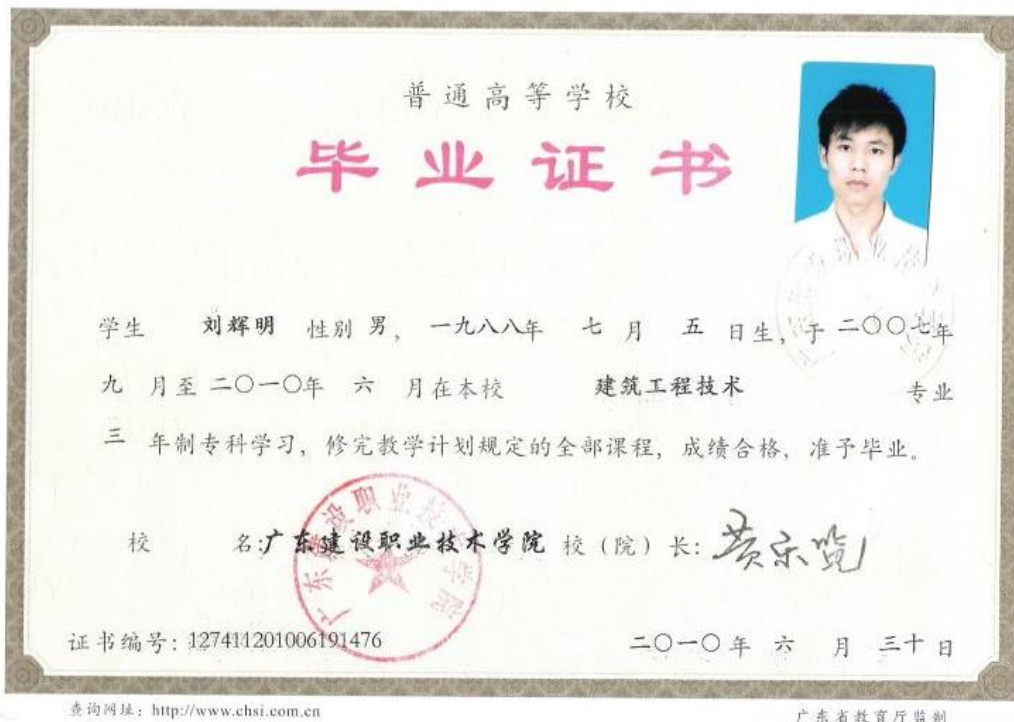 普通高等学校
毕业证书
学生 刘辉明 性别 男， 一九八八年 七 月 五 日生，于 二〇〇七年
九 月至 二〇一〇年 六 月在本校 建筑工程技术 专业
三 年制专科学习，修完教学计划规定的全部课程，成绩合格，准予毕业。
校 名:广东建设职业技术学院 校（院）长:
广东建设职业技术学院
证书编号：127411201006191476 二〇一〇年 六 月 三十 日
查询网址：http://www.chsi.com.cn 广东省教育厅监制